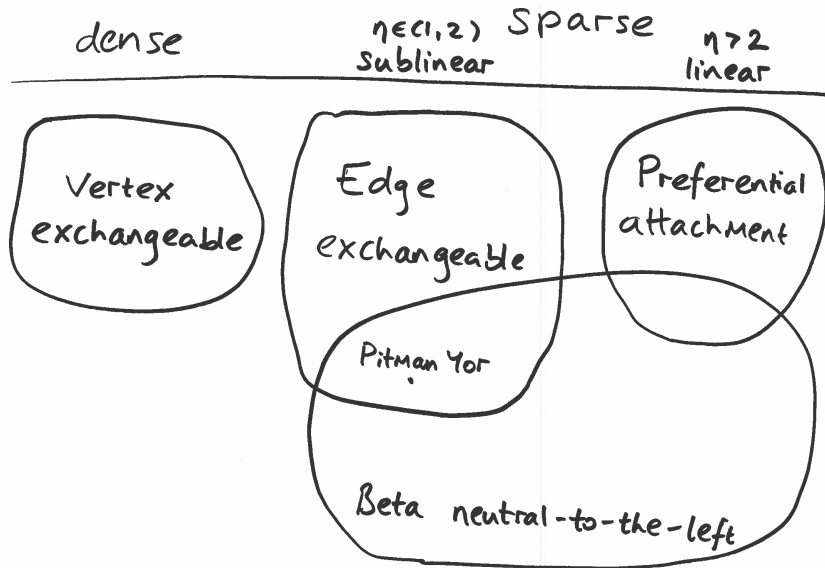 dense
η∈(1,2) sparse η>2
sublinear linear
Vertex
exchangeable
Edge
exchangeable
Preferential
attachment
Pitman Yor
Beta neutral-to-the-left